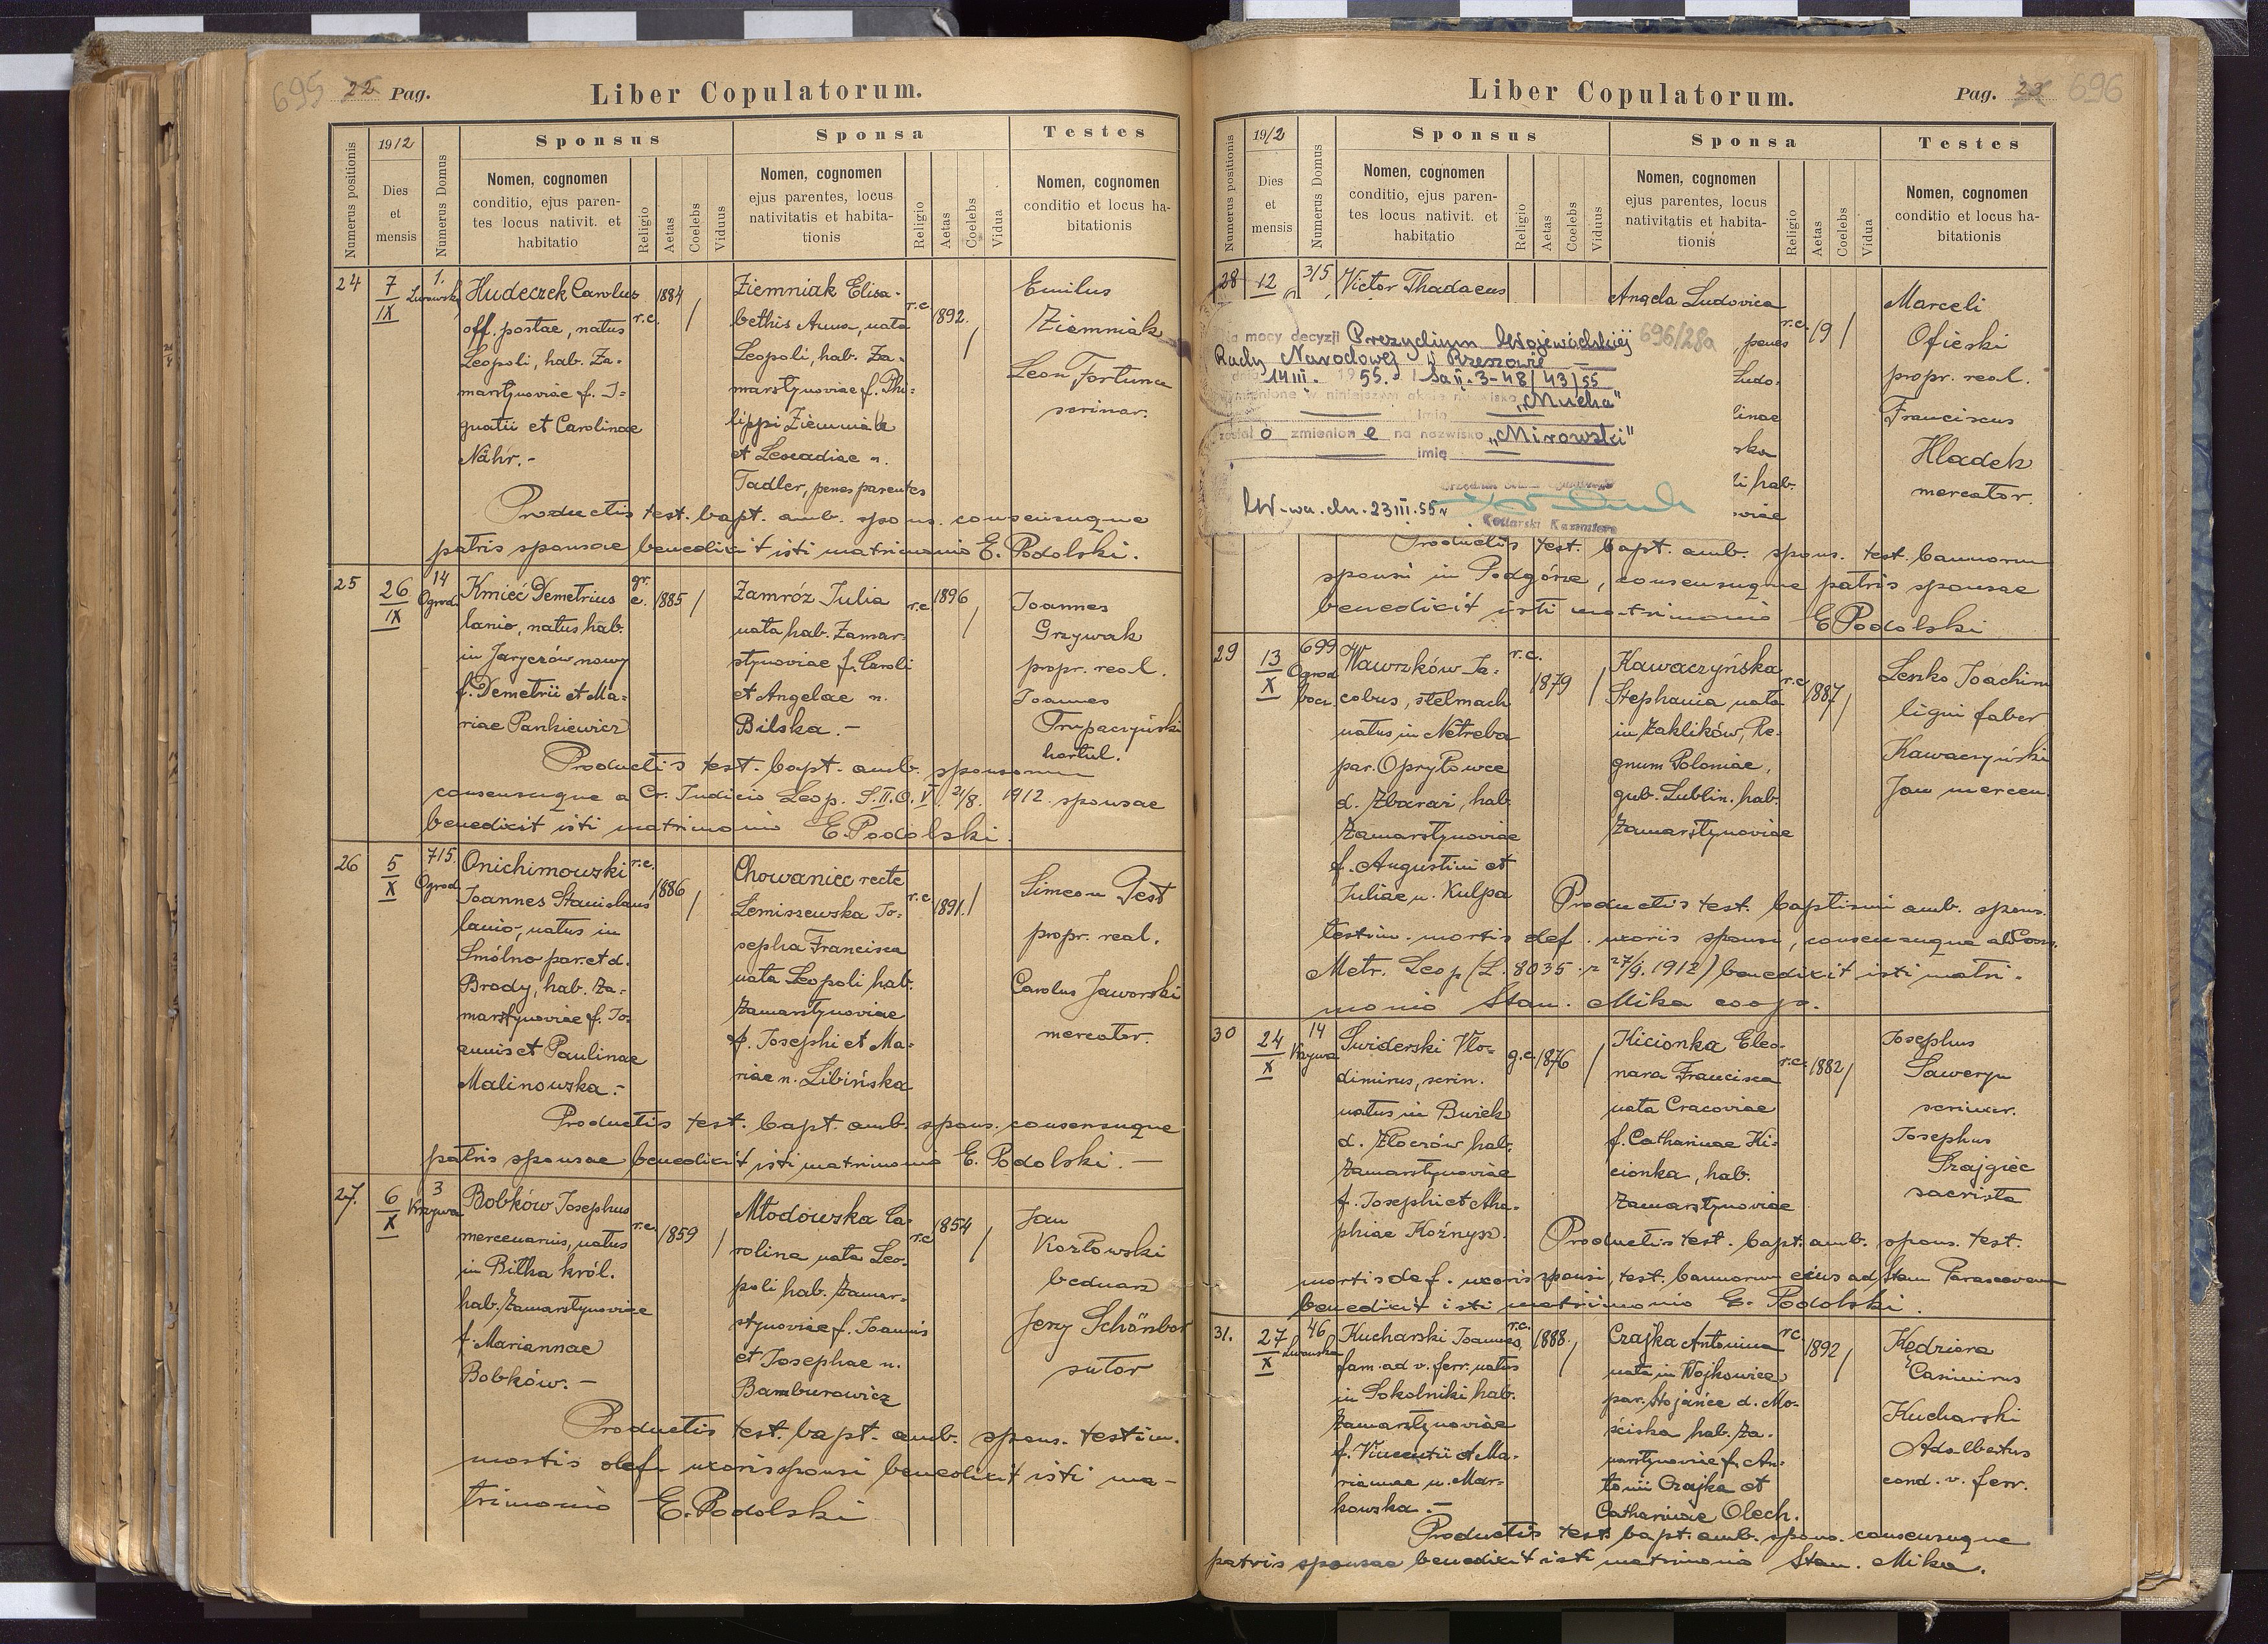 695 22 Pag.
Liber Copulatorum.
Numerus positionis
1912
Dies
et
mensis
Numerus Domus
Sponsus
Nomen, cognomen
conditio, ejus paren-
tes locus nativit. et
habitatio
Religio
Aetas
Coelebs
Viduus
Sponsa
Nomen, cognomen
ejus parentes, locus
nativitatis et habita-
tionis
Religio
Aetas
Coelebs
Vidua
Testes
Nomen, cognomen
conditio et locus ha-
bitationis
24
7
IX
1.
Hudeczek Carolus
off. postae, natus
Leopoli, hab. Za-
marstynoviae f. I-
gnatii et Carolinae
Nähr.-
r.c.
1884
Ziemniak Elisa-
bethis Anna, nata
Leopoli, hab. Za-
marstynoviae f. Phi-
lippi Ziemniak
et Leocadiae n.
Tadler, penes parentes
r.c.
1892.
Emilus
Ziemniak
Leon Fortuna
scrinar.
Productis test. bapt. amb. spons. consensuque
patris sponsae benedixit isti matrimonio E. Podolski.
25
26
IX
14
Ogrod.
Kmieć Demetrius
lanio, natus hab.
in Jaryczów nowy
f. Demetrii et Ma-
riae Pankiewicz
gr.
c.
1885
Zamróz Julia
nata hab. Zamar-
stynoviae f. Caroli
et Angelae n.
Bilska.-
r.c
1896
Joannes
Grzywak
propr. real.
Joannes
Trupaczyński
hortul.
Productis test. bapt. amb. sponsorum
consensuque a Cr. Judicio Leop. S.II.O.V. 21/8. 1912 sponsae
benedixit isti matrimonio E. Podolski.
26
5
X
715.
Ogrod.
Onichimowski
Joannes Stanislaus
lanio, natus in
Smólno par. et d.
Brody, hab. Za-
marstynoviae f. Jo-
annis et Paulinae
Malinowska.-
r.c.
1886
Chowaniec recte
Lemiszewska Jo-
sepha Francisca
nata Leopoli hab.
Zamarstynoviae
f. Josephi et Ma-
riae n. Libińska
r.c.
1891.
Simeon Pest
propr. real.
Carolus Jaworski
mercator.
Productis test. bapt. amb. spons. consensuque
patris sponsae benedixit isti matrimonio E. Podolski.—
27.
6
X
3
Krzywa
Bobków Josephus
mercenarius, natus
in Bitka król.
hab. Zamarstynoviae
f. Mariannae
Bobków.-
r.c.
1859
Młodowska Ca-
rolina nata Leo-
poli hab. Zamar-
stynoviae f. Joannis
et Josephae n.
Bamburowicz
r.c
1854
Jan
Kozłowski
bednarz
Jerzy Schönbor
sutor
Productis test. bapt. amb. spons. testim.
mortis def. uxoris sponsi benedixit isti ma-
trimonio E. Podolski
Liber Copulatorum.
Pag. 23 696
Numerus positionis
1912
Dies
et
mensis
Numerus Domus
Sponsus
Nomen, cognomen
conditio, ejus paren-
tes locus nativit. et
habitatio
Religio
Aetas
Coelebs
Viduus
Sponsa
Nomen, cognomen
ejus parentes, locus
nativitatis et habita-
tionis
Religio
Aetas
Coelebs
Vidua
Testes
Nomen, cognomen
conditio et locus ha-
bitationis
28
12
315
Victor Thadaeus
Angela Ludovica
r.c.
Marceli
Ofieski
propr. real.
Franciscus
Hladek
mercator.
Na mocy decyzji Prezydium Wojewódzkiej 696/28a
Rady Narodowej w Rzeszowie
dnia 14 III. 1955. Sa II. 3-48/43/55
wymienione w niniejszym akcie nazwisko "Mucha"
imię
został o zmienion e na nazwisko "Mirowski"
imię
W-wa. dn. 23 III. 55 r.
Kotlarski Kazimierz
Productis test. bapt. amb. spons. test. bannorum
sponsi in Podgórze, consensuque patris sponsae
benedixit isti matrimonio E Podolski
29
13
X
699
Wawrzków Ja-
cobus, stelmach
natus in Netreba
par. Opryłowce
d. Zbaraż, hab.
Zamarstynoviae
f. Augustini et
Juliae n. Kulpa
r.c.
1879
Kawaczyńska
Stephania nata
in Zaklików, Re-
gnum Poloniae,
gub. Lublin. hab.
Zamarstynoviae
r.c
1887
Leszko Joachim
ligni faber
Kawaczyński
Jan mercen.
Productis test. baptismi amb. spons.
testim. mortis def. uxoris sponsi, consensuque ab Cons.
Metr. Leop (L. 8035. z 27/9. 1912) benedixit isti matri-
monio Stan. Mika coop.
30
24
X
14
Krzywa
Swiderski Vlo-
dimirus, scrin.
natus in Bwiek
d. Złoczów hab.
Zamarstynoviae
f. Josephi et Aha-
phiae Koźnysz.
g.c.
1876
Kicionka Eleo-
nara Francisca
nata Cracoviae
f. Catharinae Ki-
cionka, hab.
Zamarstynoviae
r.c.
1882
Josephus
Saweryn
scrinar.
Josephus
Szajgiec
sacrista
Productis test. bapt. amb. spons. test.
mortis def. uxoris sponsi, test. bannorum eius ad Stam Parasceven
benedixit isti matrimonio E. Podolski.
31.
27
X
46
Lwowska
Kucharski Joannes
fam. ad v. ferr. natus
in Sokolniki hab.
Zamarstynoviae
f. Vincentii et Ma-
riannae n. Mar-
kowska.-
r.c.
1888.
Czajka Antonina
nata in Wojkowice
par. Stojańce d. Mo-
ściska hab. Za-
marstynoviae f. An-
tonii Czajka et
Catharinae Olech.
r.c.
1892
Kędziora
Casimirus
Kucharski
Adalbertus
cond. v. ferr.
Productis test. bapt. amb. spons. consensuque
patris sponsae benedixit isti matrimonio Stan. Mika.